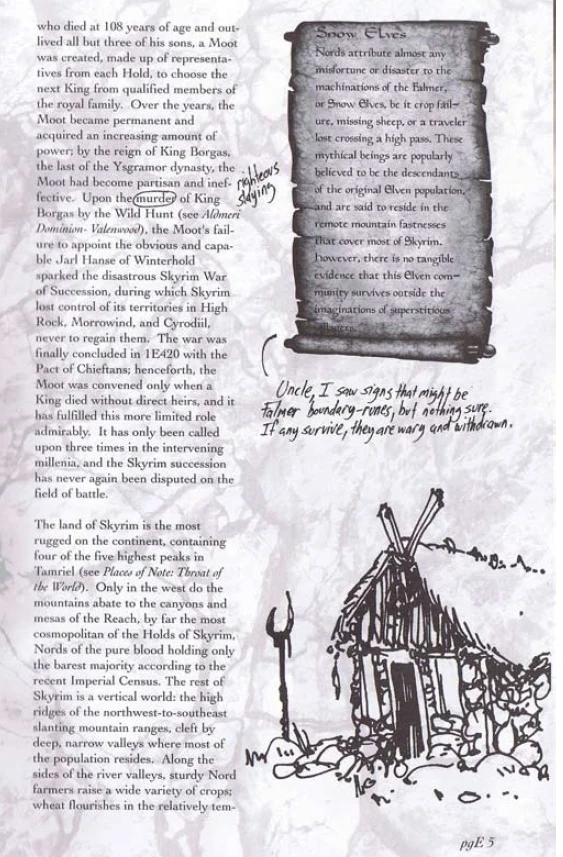 who died at 108 years of age and out-
lived all but three of his sons, a Moot
was created, made up of representa-
tives from each Hold, to choose the
next King from qualified members of
the royal family. Over the years, the
Moot became permanent and
acquired an increasing amount of
power; by the reign of King Borgas,
the last of the Ysgramor dynasty, the
Moot had become partisan and inef-
fective. Upon the murder of King
Borgas by the Wild Hunt (see Aldmeri
Dominion- Valenwood), the Moot's fail-
ure to appoint the obvious and capa-
ble Jarl Hanse of Winterhold
sparked the disastrous Skyrim War
of Succession, during which Skyrim
lost control of its territories in High
Rock, Morrowind, and Cyrodiil,
never to regain them. The war was
finally concluded in 1E420 with the
Pact of Chieftans; henceforth, the
Moot was convened only when a
King died without direct heirs, and it
has fulfilled this more limited role
admirably. It has only been called
upon three times in the intervening
millenia, and the Skyrim succession
has never again been disputed on the
field of battle.
righteous
slaying
The land of Skyrim is the most
rugged on the continent, containing
four of the five highest peaks in
Tamriel (see Places of Note: Throat of
the World). Only in the west do the
mountains abate to the canyons and
mesas of the Reach, by far the most
cosmopolitan of the Holds of Skyrim,
Nords of the pure blood holding only
the barest majority according to the
recent Imperial Census. The rest of
Skyrim is a vertical world: the high
ridges of the northwest-to-southeast
slanting mountain ranges, cleft by
deep, narrow valleys where most of
the population resides. Along the
sides of the river valleys, sturdy Nord
farmers raise a wide variety of crops;
wheat flourishes in the relatively tem-
Snow Elves
Nords attribute almost any
misfortune or disaster to the
machinations of the Falmer,
or Snow Elves, be it crop fail-
ure, missing sheep, or a traveler
lost crossing a high pass. These
mythical beings are popularly
believed to be the descendants
of the original Elven population,
and are said to reside in the
remote mountain fastnesses
that cover most of Skyrim.
However, there is no tangible
evidence that this Elven com-
munity survives outside the
imaginations of superstitious
Uncle, I saw signs that might be
Falmer boundary-runes, but nothing sure.
If any survive, they are wary and withdrawn.
pgE 5